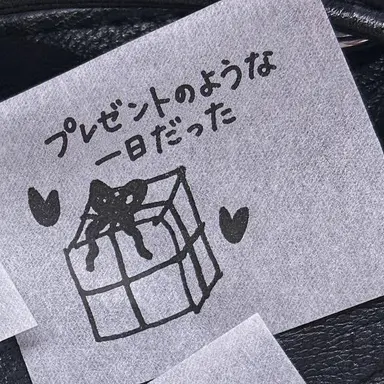 プレゼントのような
一日だった